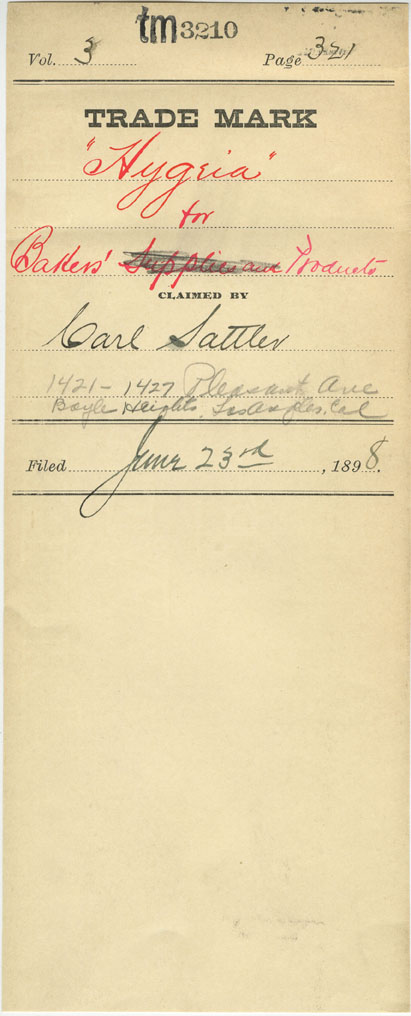 tm3210
Vol. 3 Page 321
TRADE MARK
"Hygeia"
for
Bakers' Supplies and Products
CLAIMED BY
Carl Sattler
1421 - 1427 Pleasant Ave
Boyle Heights, Los Angeles, Cal
Filed June 23rd, 1898.